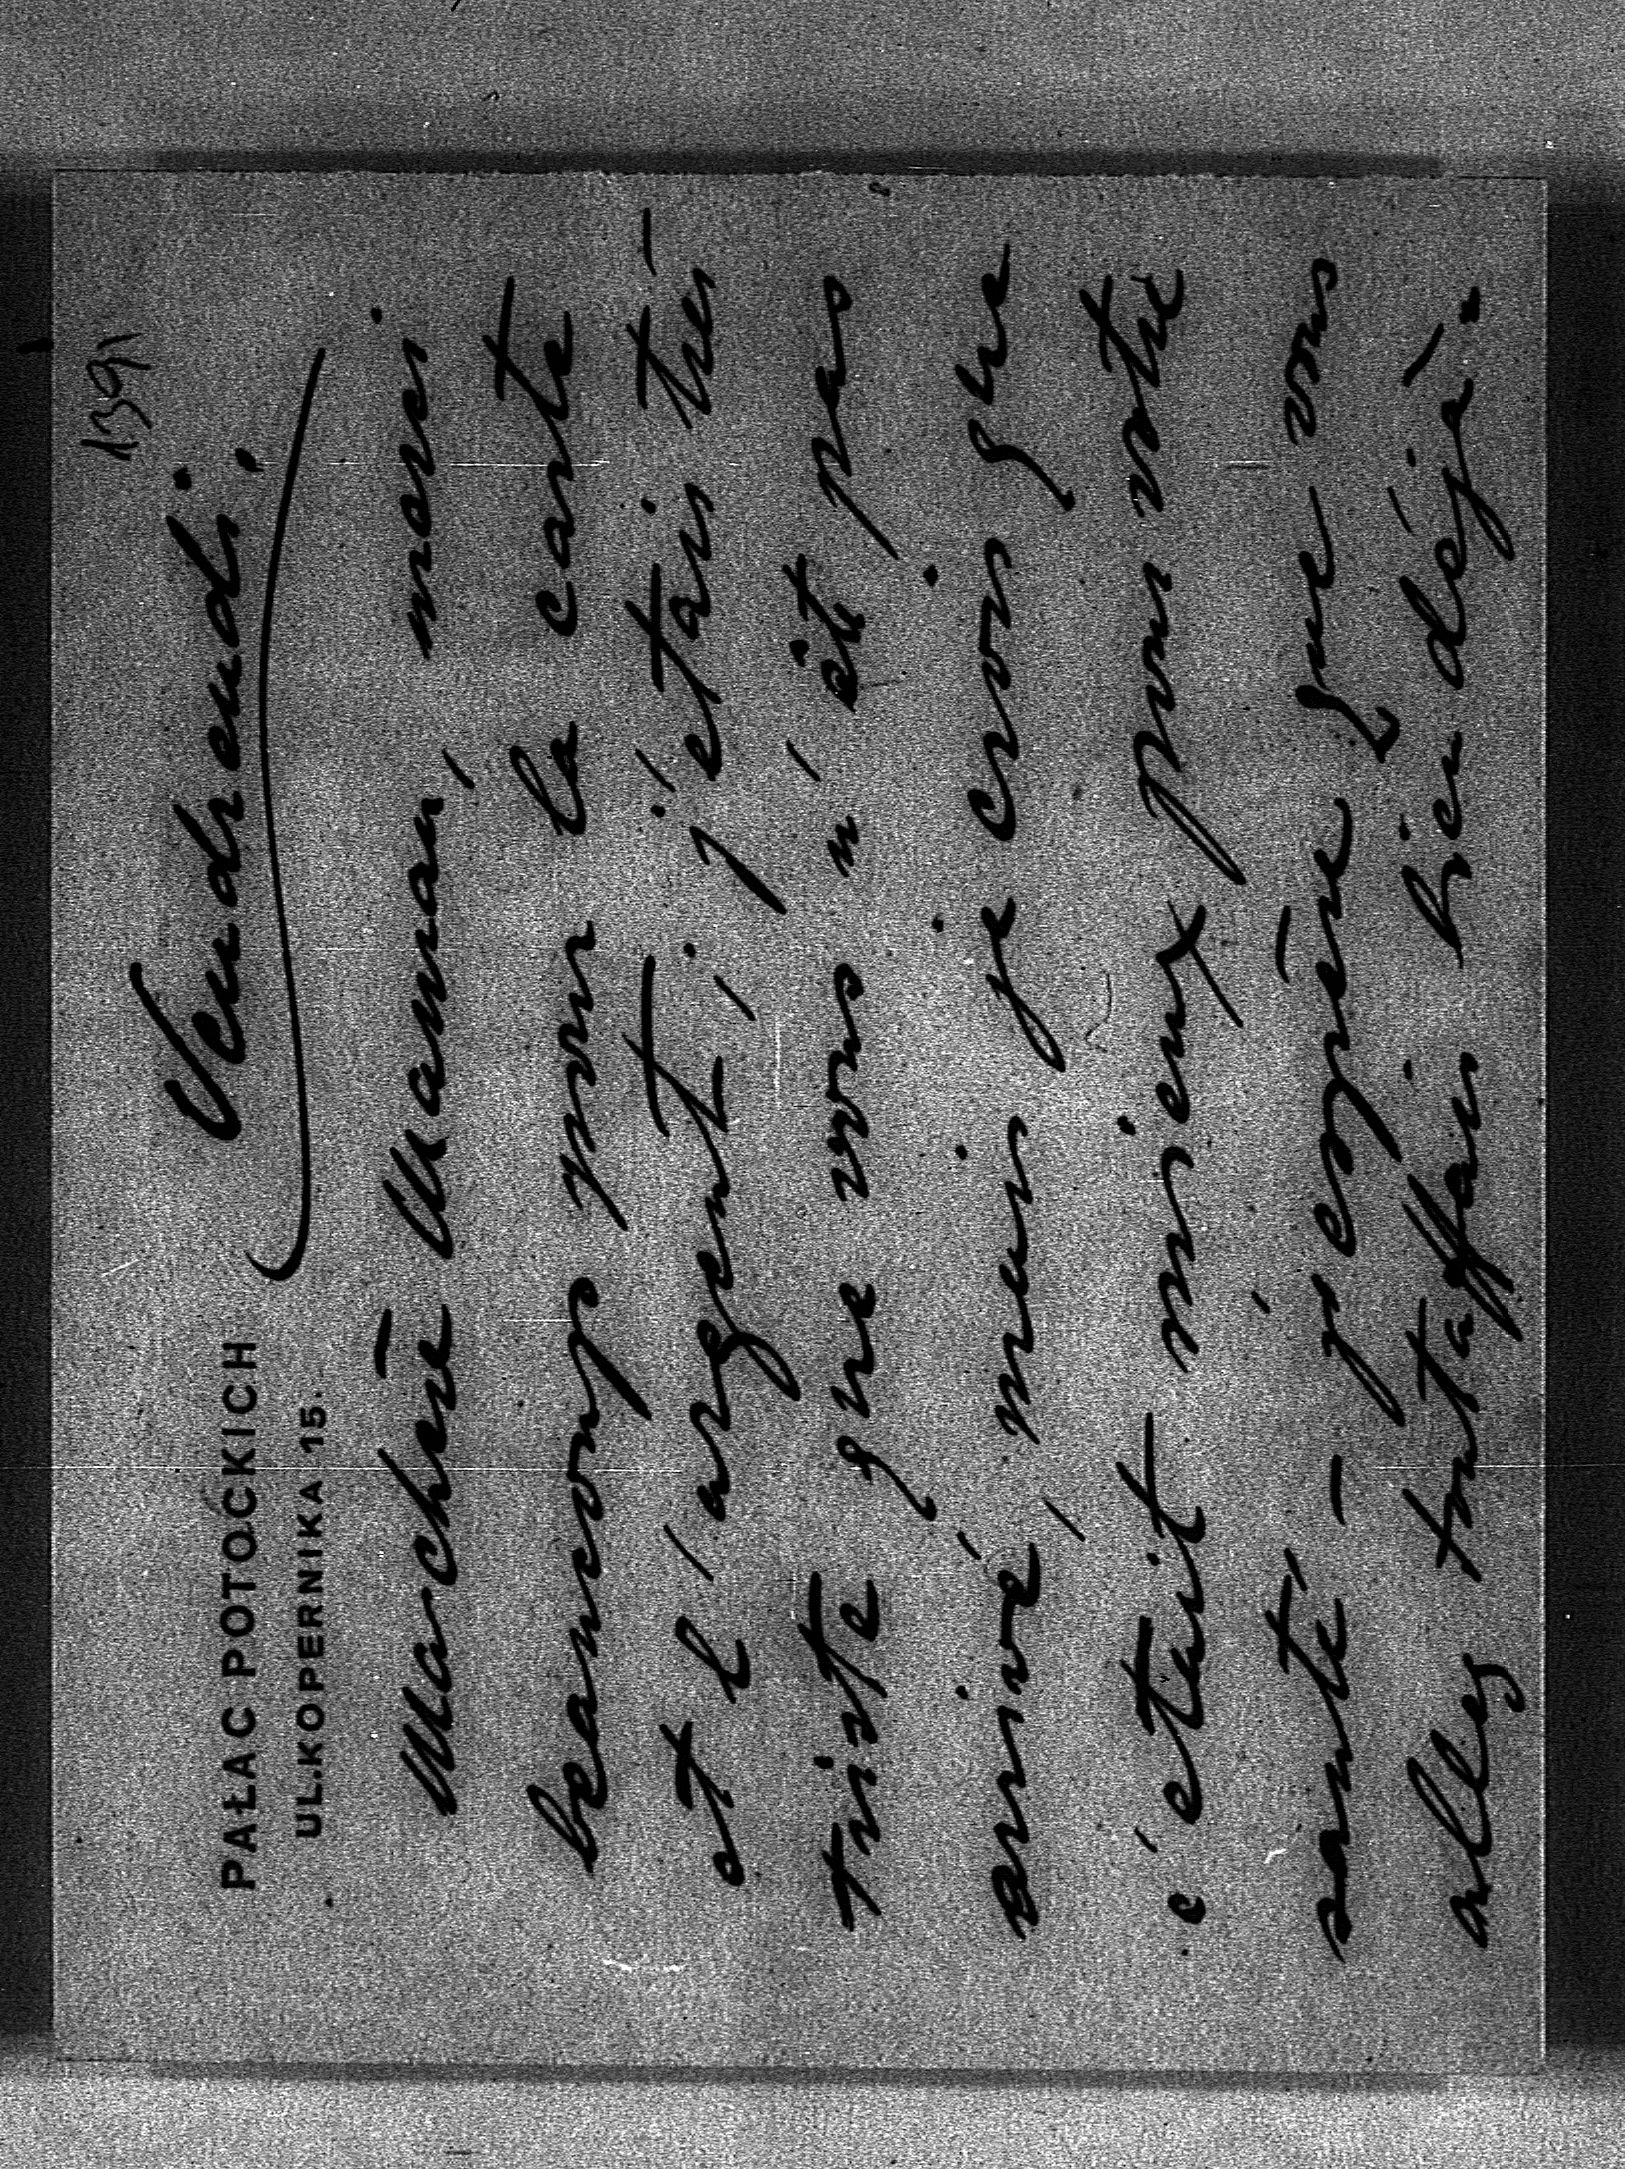 1391
PAŁAC POTOCKICH
UL.KOPERNIKA 15.
Vendredi.
Ma chère Maman, merci
beaucoup pour la carte
et l'argent, j'étais très
triste que vous n'êt pas
arrivé, mais je crois que
c'était mieux pour votre
santé - j'espère que vous
allez tout à ffais bien déjà.